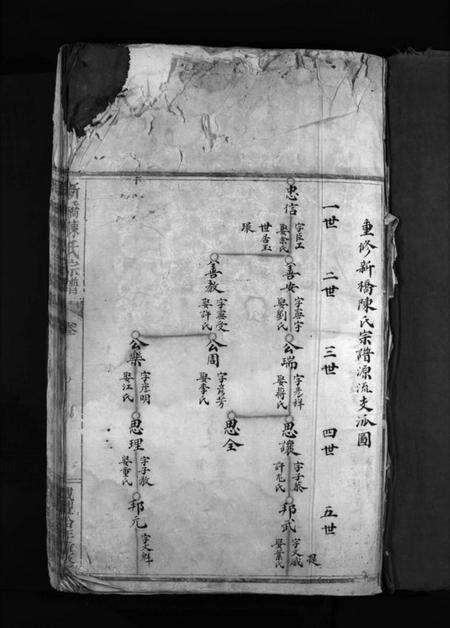 重修新橋陳氏宗譜源流支派圖
一世
二世
三世
四世
五世
忠信
娶余氏
世居玉
琅
善安
字惠宇
娶劉氏
公瑞
字彥祥
娶蔣氏
思讓
字子恭
許尤氏
邦武
字文威
娶葉氏
善教
字惠受
娶許氏
公周
字彥芳
娶李氏
思全
公樂
字彥明
娶江氏
思理
字子敬
娶童氏
邦元
字文魁
新橋陳氏宗譜